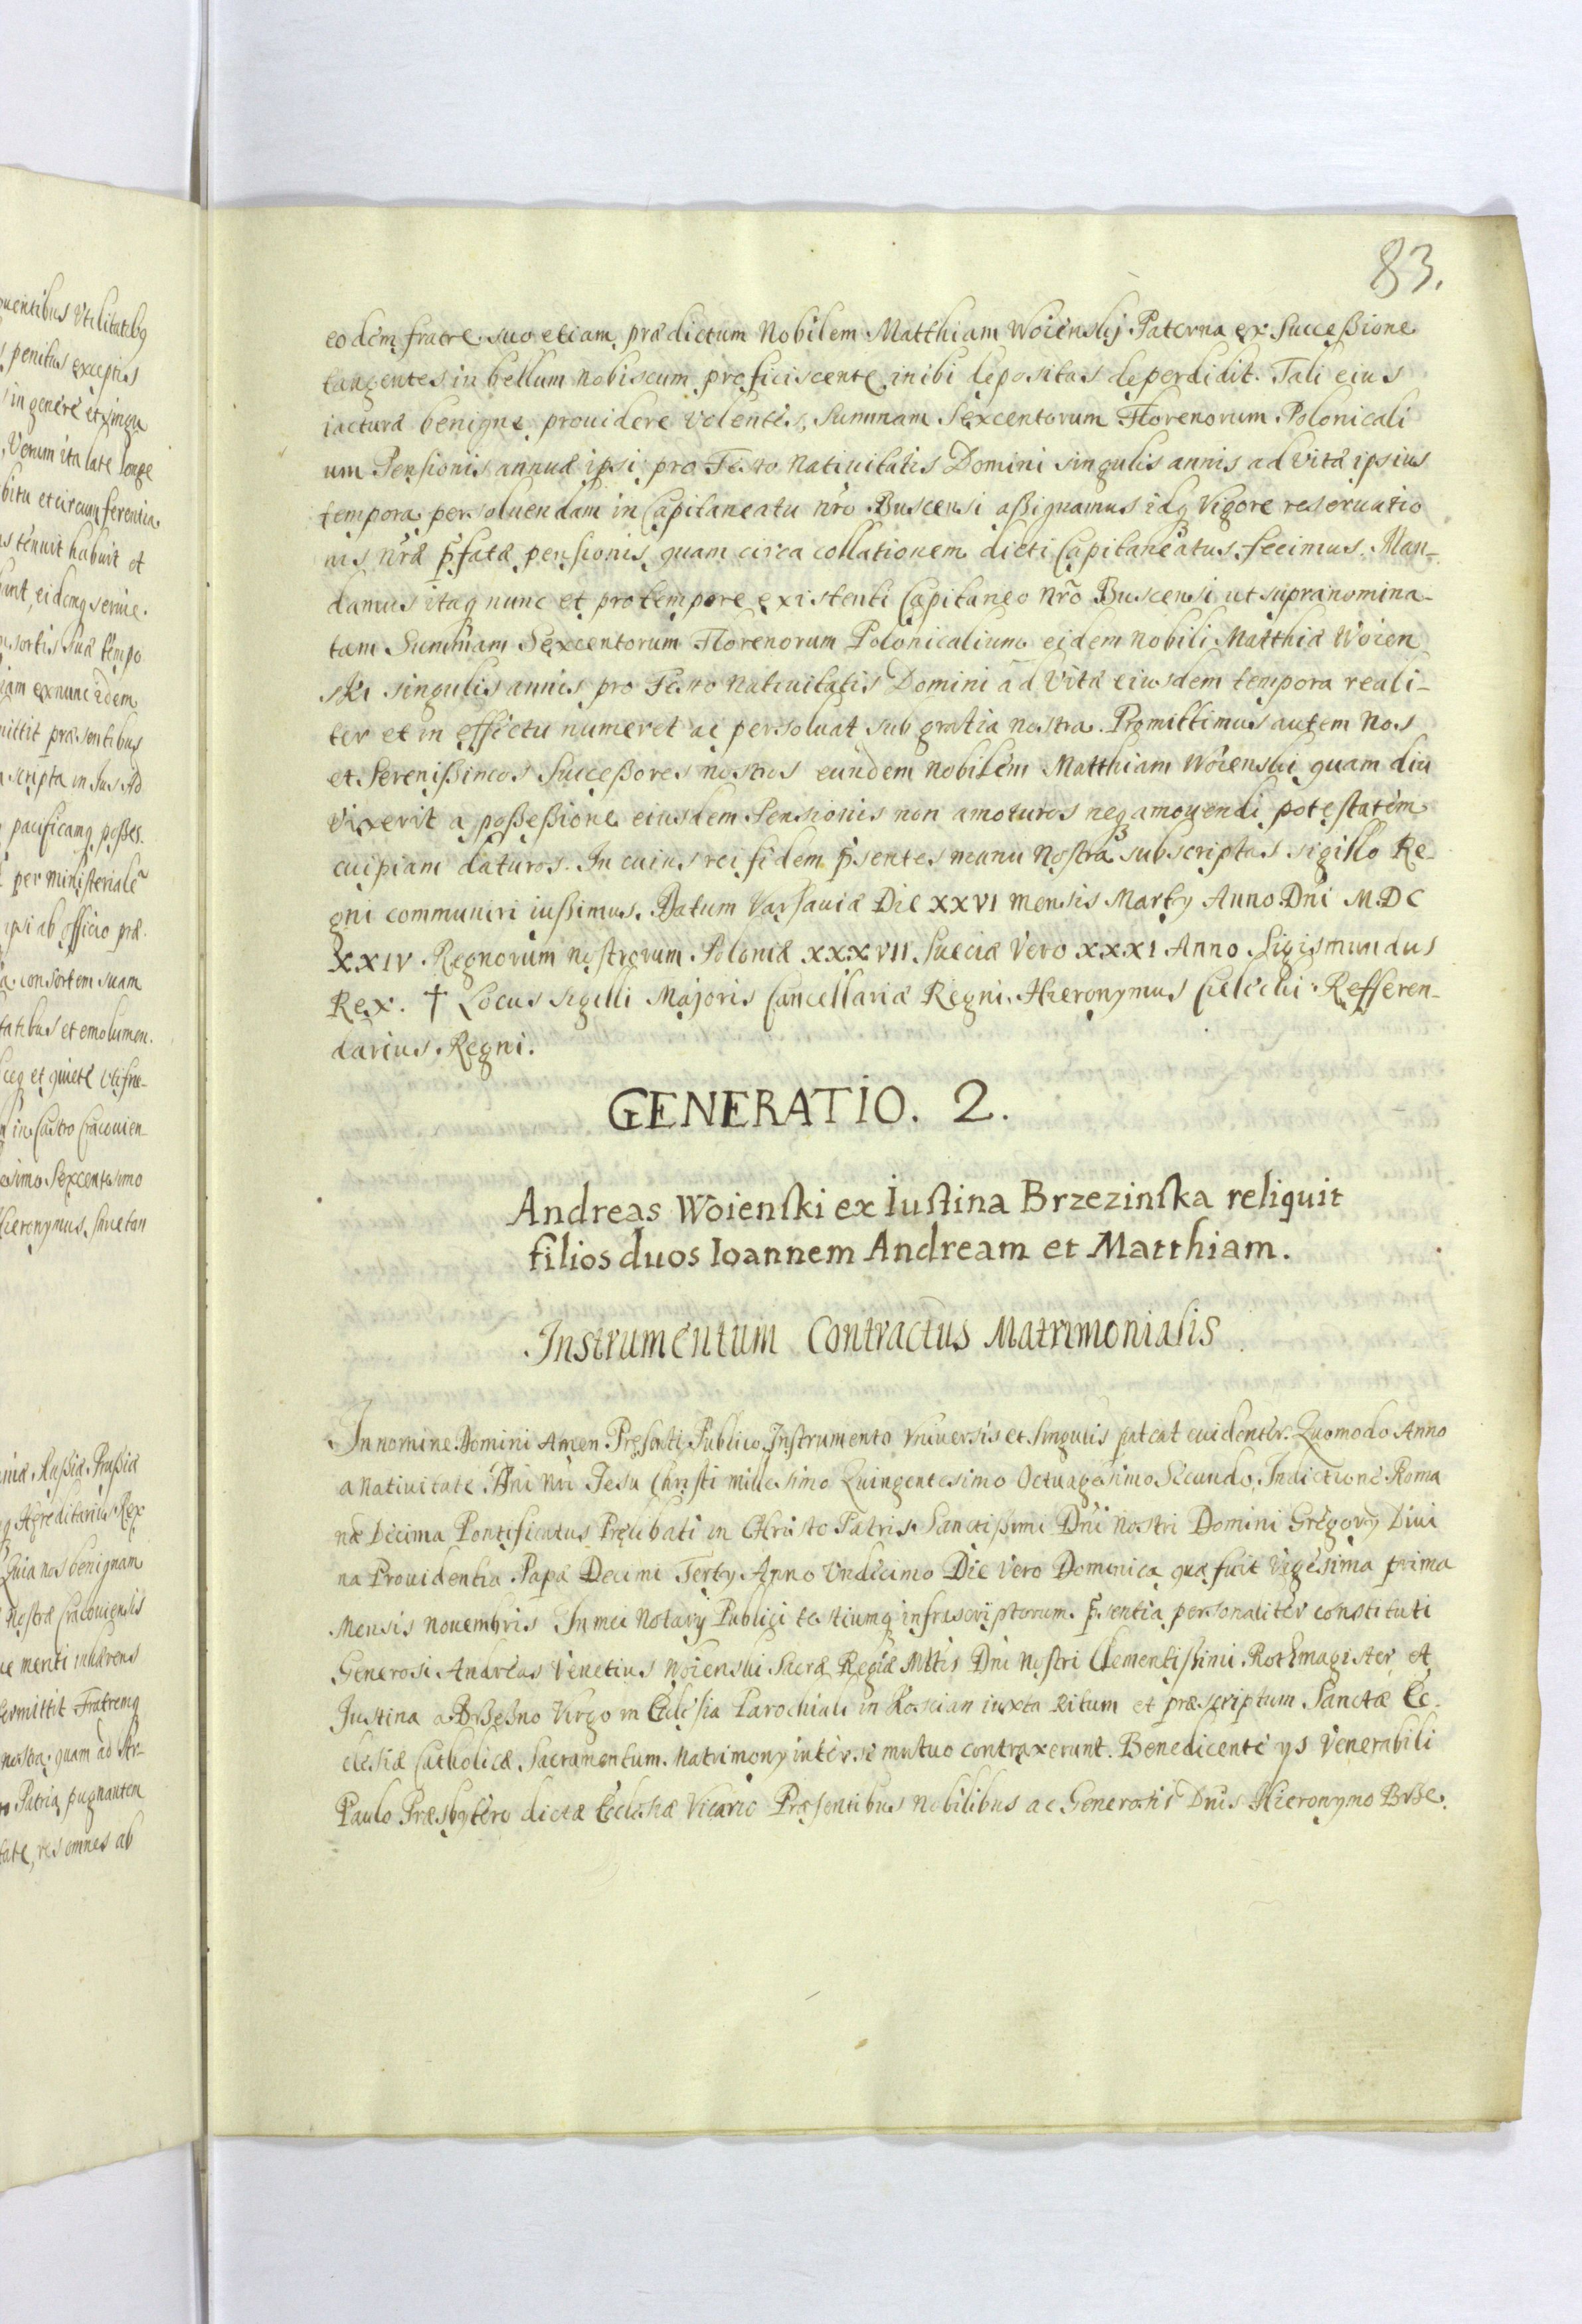 83.
eodem fratre suo etiam prædictum Nobilem Matthiam Woienskij Paterna ex Successione
tangentes in bellum nobiscum proficiscente inibi depositas deperdidit. Tali eius
iacturæ benigne prouidere volentes, Summam Sexcentorum Florenorum Polonicali
um Pensionis annuæ ipsi pro Festo Natiuitatis Domini singulis annis ad Vitæ ipsius
tempora persoluendam in Capitaneatu nr̃o Buscensi assignamus idq Vigore reseruatio
nis nr̃æ p̃fatæ pensionis quam circa collationem dicti Capitaneatus fecimus. Man-
damus itaq nunc et pro tempore existenti Capitaneo nr̃o Buscensi ut supranomina-
tam Summam Sexcentorum Florenorum Polonicalium eidem Nobili Matthiæ Woien
ski singulis annis pro Festo Natiuitatis Domini ad Vitæ eiusdem tempora reali-
ter et in effectu numeret ac persoluat sub gratia nostra. Promittimus autem Nos
et Serenissimos Successores nostros eundem Nobilem Matthiam Woienski quam diu
vixerit a possessione eiusdem Pensionis non amoturos neq amouendi potestatem
cuipiam daturos. In cuius rei fidem p̃sentes manu Nostra subscriptas sigillo Re-
gni communiri iussimus. Datum Varsauiæ Die XXVI mensis Martij Anno Dñi M.DC
XXIV Regnorum nostrorum Poloniæ XXXVII Sueciæ Vero XXXI Anno Sigismundus
Rex. † Locus sigilli Majoris Cancellariæ Regni. Hieronymus Cielecki Refferen-
darius Regni.
GENERATIO. 2.
Andreas Woienski ex Iustina Brzezinska reliquit
filios duos Ioannem Andream et Matthiam.
Instrumentum Contractus Matrimonialis
In nomine Domini Amen. Præsenti Publico Instrumento Vniuersis et Singulis pateat euidenter. Quomodo Anno
a Natiuitate Dñi Nr̃i Jesu Christi millesimo Quingentesimo Octuagesimo Secundo, Indictione Roma
næ Decima Pontificatus Prælibati in Christo Patris Sanctissimi Dñi Nostri Domini Gregorij Diui
na Prouidentia Papæ Decimi Tertij Anno Vndecimo Die Vero Dominica quæ fuit Vigesima prima
Mensis Nouembris In mei Notarij Publici testiumq infrascriptorum p̃sentia personaliter constituti
Generosi Andreas Venetius Woienski Sacræ Regiæ Mttis Dñi Nostri Clementissimi Rothmagister et
Justina a Brzezno Virgo in Ecclesia Parochiali in Kościan iuxta Ritum et præscriptum Sanctæ Ec-
clesiæ Catholicæ Sacramentum Matrimonij inter se mutuo contraxerunt. Benedicente ijs Venerabili
Paulo Præsbytero dictæ Ecclesiæ Vicario Præsentibus Nobilibus ac Generosis Dñis Hieronymo Brze-